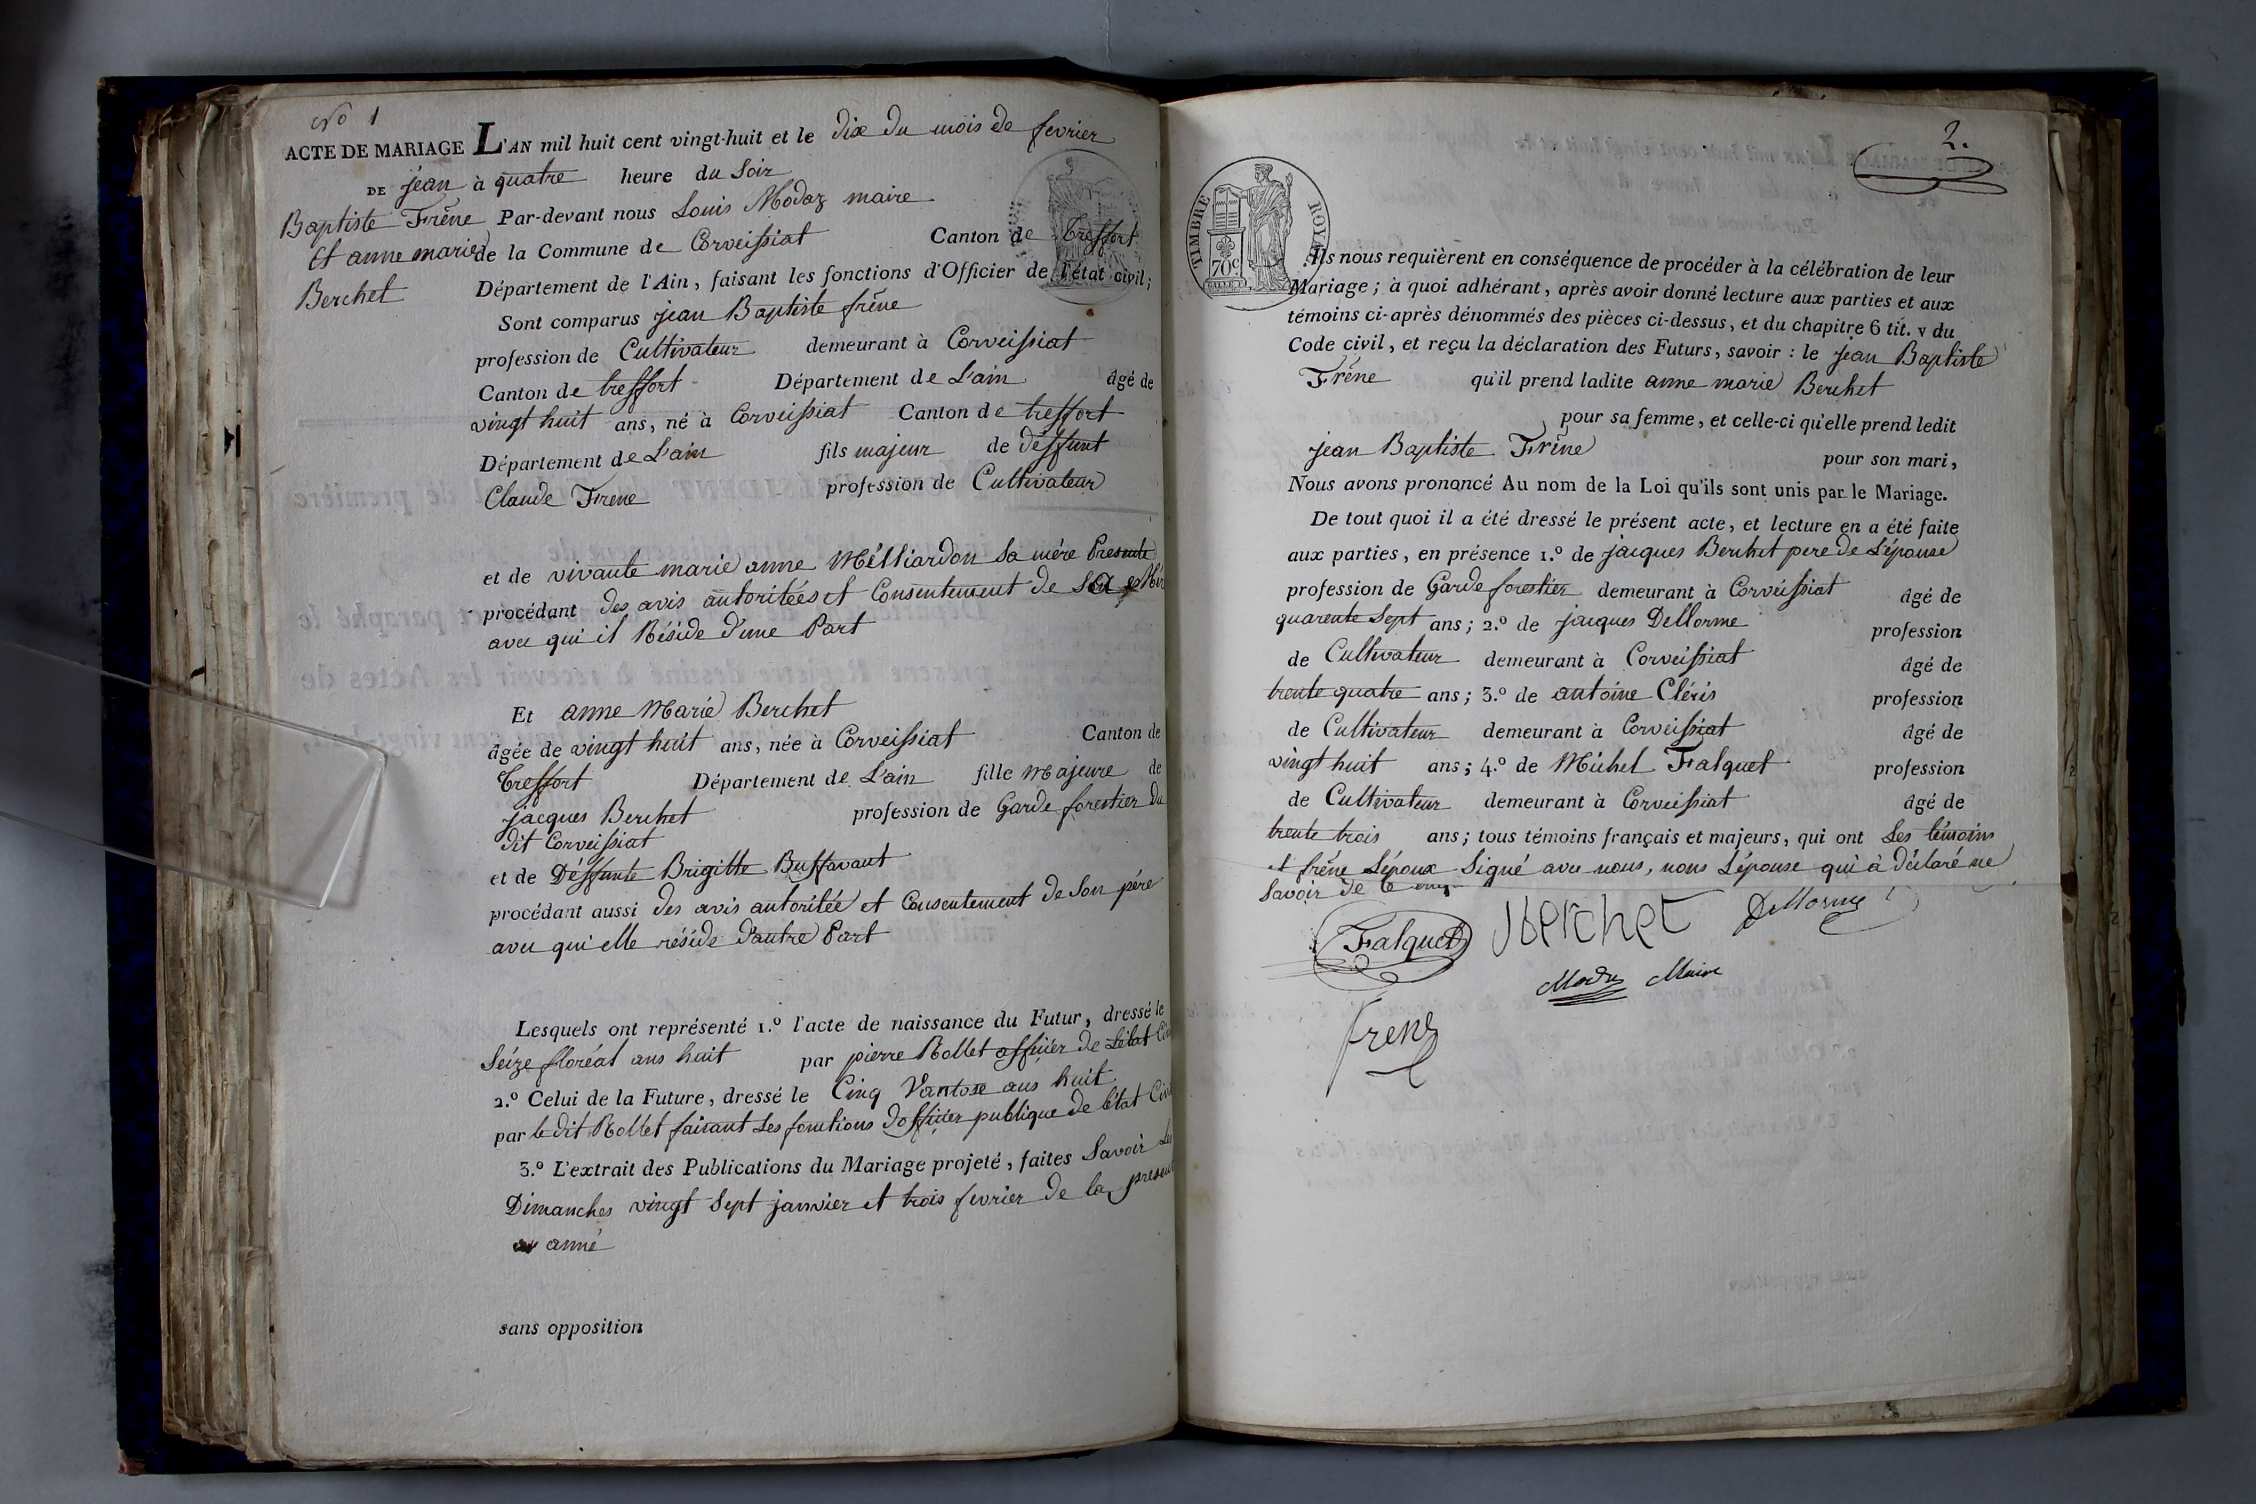 No 1
ACTE DE MARIAGE L'AN mil huit cent vingt-huit et le dix du mois de fevrier
DE jean à quatre heure du Soir
Baptiste Frêne Par-devant nous Louis Modaz maire
et anne marie de la Commune de Corveissiat Canton de Treffort
Berchet Département de l'Ain, faisant les fonctions d'Officier de l'état civil;
Sont comparus jean Baptiste frêne
profession de Cultivateur demeurant à Corveissiat
Canton de treffort Département de L'ain âgé de
vingt huit ans, né à Corveissiat Canton de treffort
Département de L'ain fils majeur de déffunt
Claude Frene profession de Cultivateur
et de vivante marie anne Mélliardon Sa mére Presente
procédant des avis autoritées et Consentement de Sa Mér
avec qui il Réside d'une Part
Et anne Marie Berchet
âgée de vingt huit ans, née à Corveissiat Canton de
Treffort Département de L'ain fille Majeure de
jacques Berchet profession de Garde forestier du
dit Corveissiat
et de Déffunte Brigitte Buffavant
procédant aussi des avis autoritée et Consentement de Son pére
avec qui elle réside d'autre Part
Lesquels ont représenté 1.º l'acte de naissance du Futur, dressé le
Seize floréal ans huit par pierre Rollet officier de L'état Civ
2.º Celui de la Future, dressé le Cinq Vantose ans huit
par le dit Rollet faisant Les fonctions d'officier publique de L'état Civi
3.º L'extrait des Publications du Mariage projeté, faites Savoir Les
Dimanches vingt Sept janvier et trois fevrier de la present
anné
sans opposition
2.
TIMBRE ROYAL
70c
Ils nous requièrent en conséquence de procéder à la célébration de leur
Mariage; à quoi adhérant, après avoir donné lecture aux parties et aux
témoins ci-après dénommés des pièces ci-dessus, et du chapitre 6 tit. v du
Code civil, et reçu la déclaration des Futurs, savoir: le jean Baptiste
Frêne qu'il prend ladite anne marie Berchet
pour sa femme, et celle-ci qu'elle prend ledit
jean Baptiste Frêne pour son mari,
Nous avons prononcé Au nom de la Loi qu'ils sont unis par le Mariage.
De tout quoi il a été dressé le présent acte, et lecture en a été faite
aux parties, en présence 1.º de jacques Berchet pere de L'épouse
profession de Garde forestier demeurant à Corveissiat âgé de
quarente Sept ans; 2.º de jacques Dellorme profession
de Cultivateur demeurant à Corveissiat âgé de
trente quatre ans; 3.º de antoine Cléris profession
de Cultivateur demeurant à Corveissiat âgé de
vingt huit ans; 4.º de Michel Falquet profession
de Cultivateur demeurant à Corveissiat âgé de
trente trois ans; tous témoins français et majeurs, qui ont Les témoins
et frêne L'époux Signé avec nous, nons L'épouse qui à déclaré ne
Savoir de ce
Falquet JBerchet Dellorme
Modaz Maire
frene